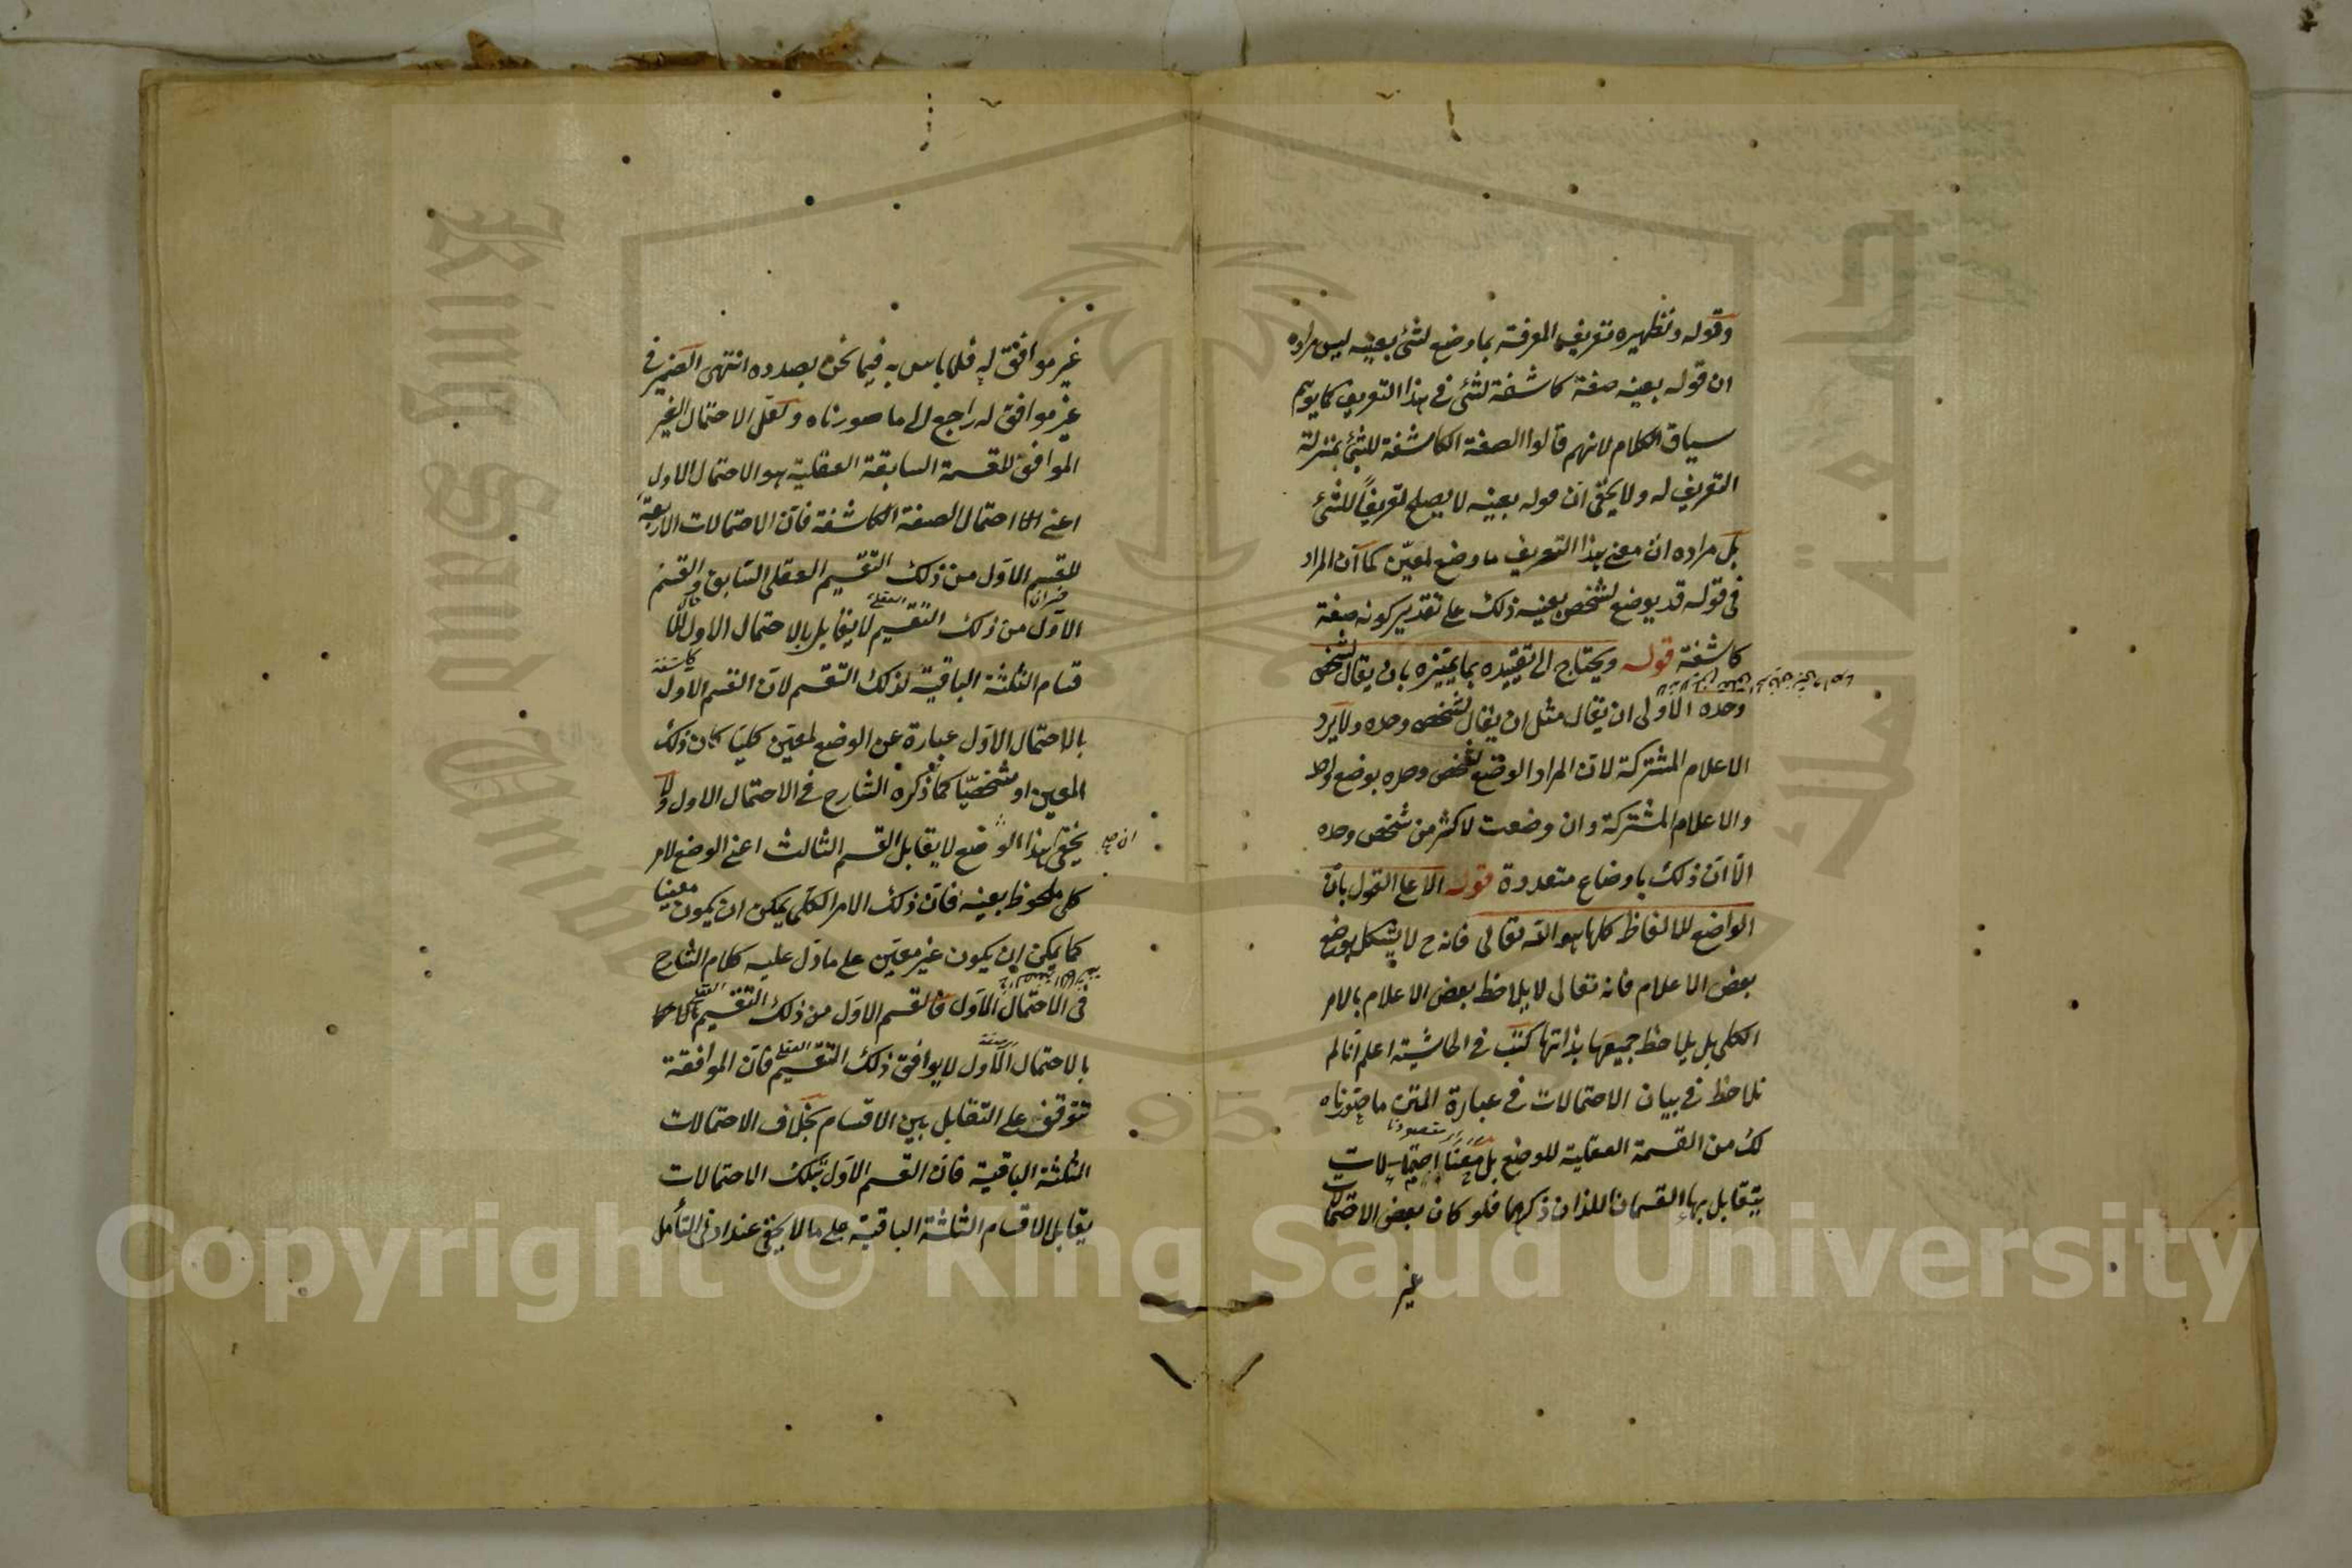 وقوله ونظيره تعريف المعرفة بما وضع لشئ بعينه ليس مراده
ان قوله بعينه صفة كاشفة لشئ في هذا التعريف كما يوهم
سياق الكلام لانهم قالوا الصفة الكاشفة للشئ بمنزلة
التعريف له ولا يخفى ان قوله بعينه لا يصلح تعريفاً للشئ
بل مراده ان معنى هذا التعريف ما وضع لمعيّن كما ان المراد
في قوله قد يوضع لشخص بعينه ذلك على تقدير كونه صفة
كاشفة قوله ويحتاج الى تقييده بما يميزه بان يقال لشخص
وحده الأولى ان يقال مثل ان يقال لشخص وحده ولا يرد
الاعلام المشتركة لان المراد الوضع لشخص وحده بوضع واحد
والاعلام المشتركة وان وضعت لاكثر من شخص وحده
الا ان ذلك باوضاع متعددة قوله الا على القول بان
الواضع للالفاظ كلها هو الله تعالى فانه ح لا يشكل بوضع
بعض الاعلام فانه تعالى لا يلاحظ بعض الاعلام بالامر
الكلي بل يلاحظ جميعها بذاتها كتب في الحاشية اعلم انا لم
نلاحظ في بيان الاحتمالات في عبارة المتن ما صورناه
لك من القسمة العقلية للوضع بل احتمالات
يتقابل بها القسمان اللذان ذكرهما فلو كان بعض الاحتمالات
غير
غير موافق له فلا باس به فيما نحن بصدده انتهى الضمير في
غير موافق له راجع الى ما صورناه ولعل الاحتمال الغير
الموافق للقسمة السابقة العقلية هو الاحتمال الاول
اعني احتمال الصفة الكاشفة فان الاحتمالات الاربعة
للقسم الاول من ذلك التقسيم العقلي السابق والقسم
الاول من ذلك التقسيم لا يقابل بالاحتمال الاول
قسام الثلثة الباقية لذلك التقسيم لان القسم الاول
بالاحتمال الاول عبارة عن الوضع لمعين كليا كان ذلك
المعين او شخصيّا كما ذكره الشارح في الاحتمال الاول ولا
يخفى هذا الوضع لا يقابل القسم الثالث اعني الوضع لامر
كلي ملحوظ بعينه فان ذلك الامر الكلي يمكن ان يكون معينا
كما يمكن ان يكون غير معين على ما دل عليه كلام الشارح
في الاحتمال الاول فالقسم الاول من ذلك التقسيم
بالاحتمال الاول لا يوافق ذلك التقسيم العقلي فان الموافقة
تتوقف على التقابل بين الاقسام بخلاف الاحتمالات
الثلثة الباقية فان القسم الاول بتلك الاحتمالات
يقابل الاقسام الثلثة الباقية على ما لا يخفى عند ادنى التأمل
Copyright © King Saud University
King Saud University
جامعة الملك
1957